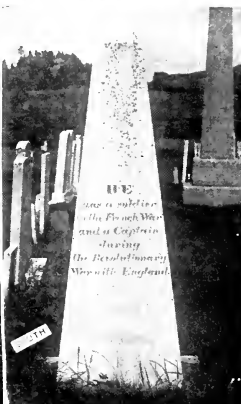 HE
was a soldier
in the French War
and a Captain
during
the Revolutionary
War with England.